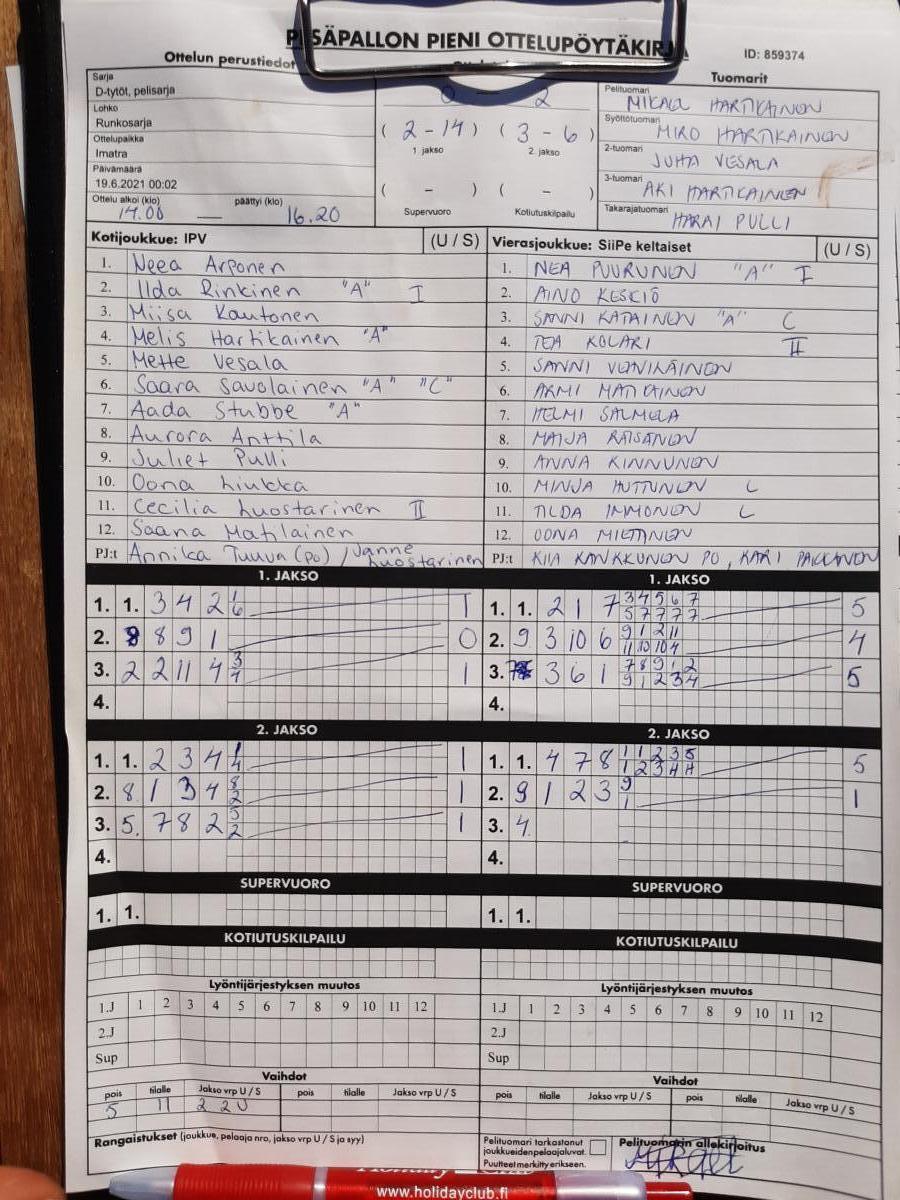 PESÄPALLON PIENI OTTELUPÖYTÄKIRJA
ID: 859374
Ottelun perustiedot
Tuomarit
Sarja
D-tytöt, pelisarja
Lohko
Runkosarja
Ottelupaikka
Imatra
Päivämäärä
19.6.2021 00:02
Ottelu alkoi (klo) päättyi (klo)
14.00 — 16.20
0 - 2
( 2 - 14 ) ( 3 - 6 )
1. jakso 2. jakso
( - ) ( - )
Supervuoro Kotiutuskilpailu
Pelituomari
MIKAEL HARTIKAINEN
Syöttötuomari
MIRO HARTIKAINEN
2-tuomari
JUHA VESALA
3-tuomari
AKI HARTIKAINEN
Takarajatuomari
HARRI PULLI
Kotijoukkue: IPV (U / S)
1. Neea Arponen
2. Ilda Rinkinen "A" I
3. Miisa Kautonen
4. Melis Hartikainen "A"
5. Mette Vesala
6. Saara Savolainen "A" "C"
7. Aada Stubbe "A"
8. Aurora Anttila
9. Juliet Pulli
10. Oona Liukka
11. Cecilia Luostarinen II
12. Saana Matilainen
PJ:t Annika Tuuva (po) / Janne Luostarinen
Vierasjoukkue: SiiPe keltaiset (U / S)
1. NEA PUURUNEN "A" I
2. AINO KESKIÖ
3. SANNI KATAINEN "A" C
4. TEA KOLARI II
5. SANNI VONIKÄINEN
6. ARMI MATIKAINEN
7. HELMI SALMELA
8. MAIJA RÄISÄNEN
9. ANNA KINNUNEN
10. MINJA HUTTUNEN L
11. TILDA IMMONEN L
12. OONA MIETTINEN
PJ:t KIIA KANKKUNEN PO, KARI PAKKANEN
1. JAKSO
1. 1. 3 4 2 1 6 1
2. 8 8 9 1 0
3. 2 2 11 4 3 4 1
4.
1. JAKSO
1. 1. 2 1 7 3 4 5 6 7 5
5 7 7 7 7
2. 9 3 10 6 9 1 2 11 4
11 10 10 4
3. 3 6 1 7 8 9 1 2 5
9 1 2 3 4
4.
2. JAKSO
1. 1. 2 3 4 1 4 1
2. 8 1 3 4 8 2 1
3. 5. 7 8 2 5 2 1
4.
2. JAKSO
1. 1. 4 7 8 1 1 2 3 5 5
1 2 3 4 4
2. 9 1 2 3 9 1 1
3. 4
4.
SUPERVUORO
1. 1.
SUPERVUORO
1. 1.
KOTIUTUSKILPAILU
KOTIUTUSKILPAILU
Lyöntijärjestyksen muutos
1.J 1 2 3 4 5 6 7 8 9 10 11 12
2.J
Sup
Lyöntijärjestyksen muutos
1.J 1 2 3 4 5 6 7 8 9 10 11 12
2.J
Sup
Vaihdot
pois tilalle Jakso vrp U / S pois tilalle Jakso vrp U / S
5 11 2 2 U
Vaihdot
pois tilalle Jakso vrp U / S pois tilalle Jakso vrp U / S
Rangaistukset (joukkue, pelaaja nro, jakso vrp U / S ja syy)
Pelituomari tarkastanut
joukkueiden pelaajaluvat.
Puutteet merkitty erikseen.
Pelituomarin allekirjoitus
www.holidayclub.fi